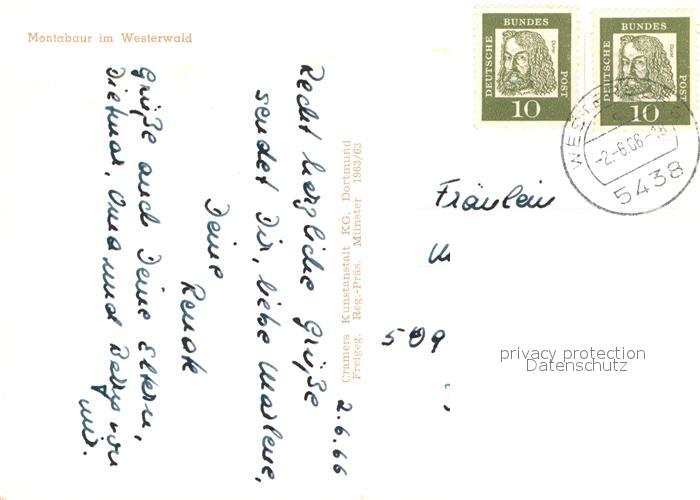 Montabaur im Westerwald
2.6.66
Recht herzliche Grüße
sendet Dir, liebe Marlene,
Deine
Renate
Grüße auch Deine Eltern,
Dietmar, Oma und von
mir.
Cramers Kunstanstalt KG, Dortmund
Freigeg. Reg.-Präs. Münster 1963/63
DEUTSCHE BUNDES POST
Dürer
10
DEUTSCHE BUNDES POST
Dürer
10
WEST
-2.-6.66-18
5438
Fräulein
509
privacy protection
Datenschutz